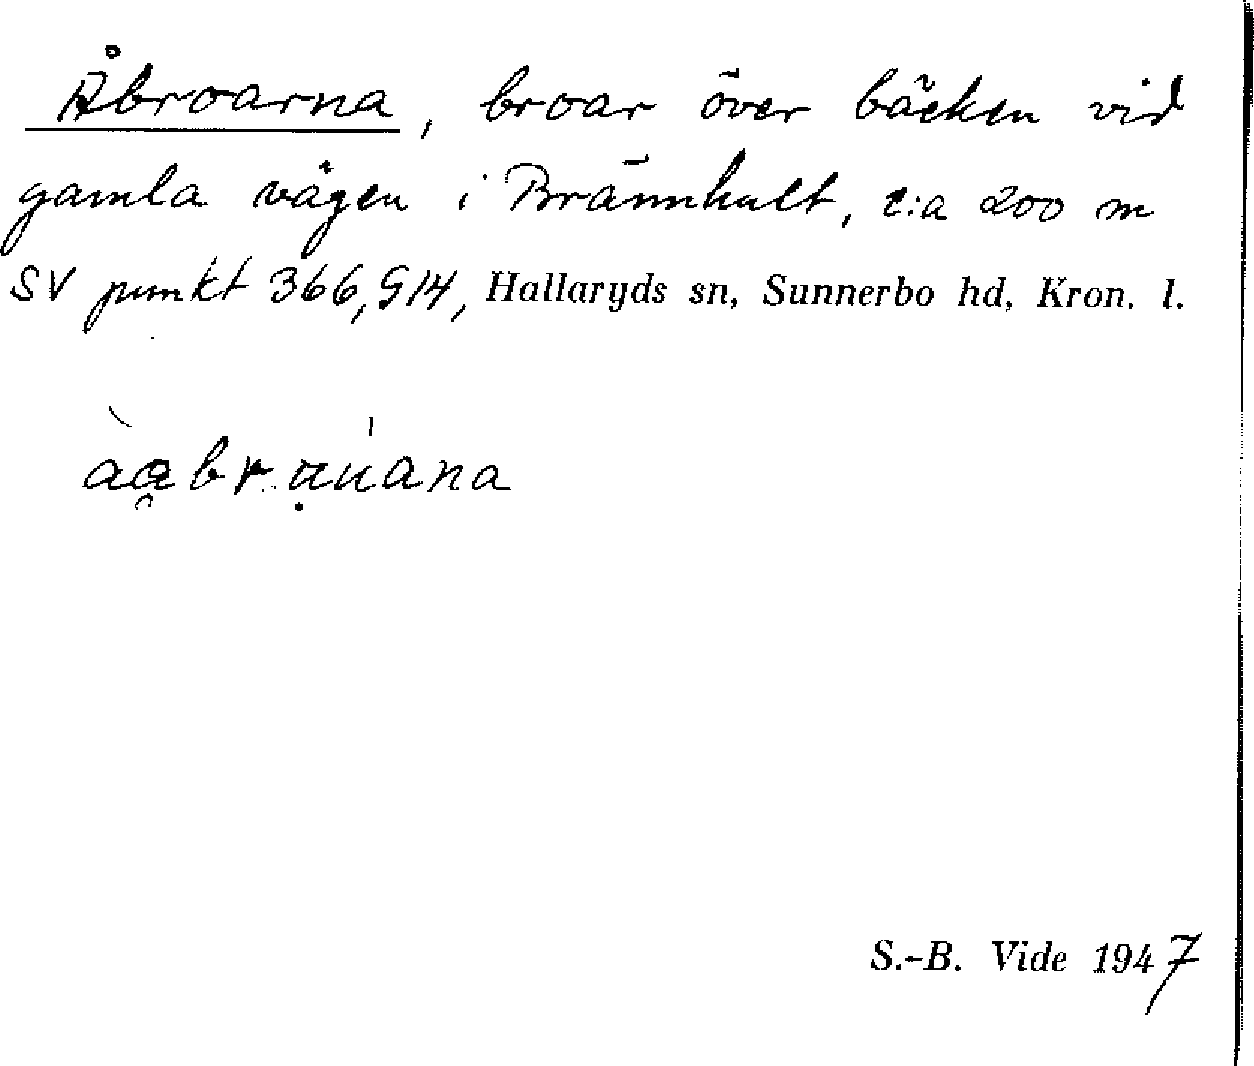 Åbroarna, broar över bäcken vid
gamla vägen i Brännhult, c:a 200 m
SV punkt 366,914, Hallaryds sn, Sunnerbo hd, Kron. l.
àa̯brụu̍ana
S.-B. Vide 1947